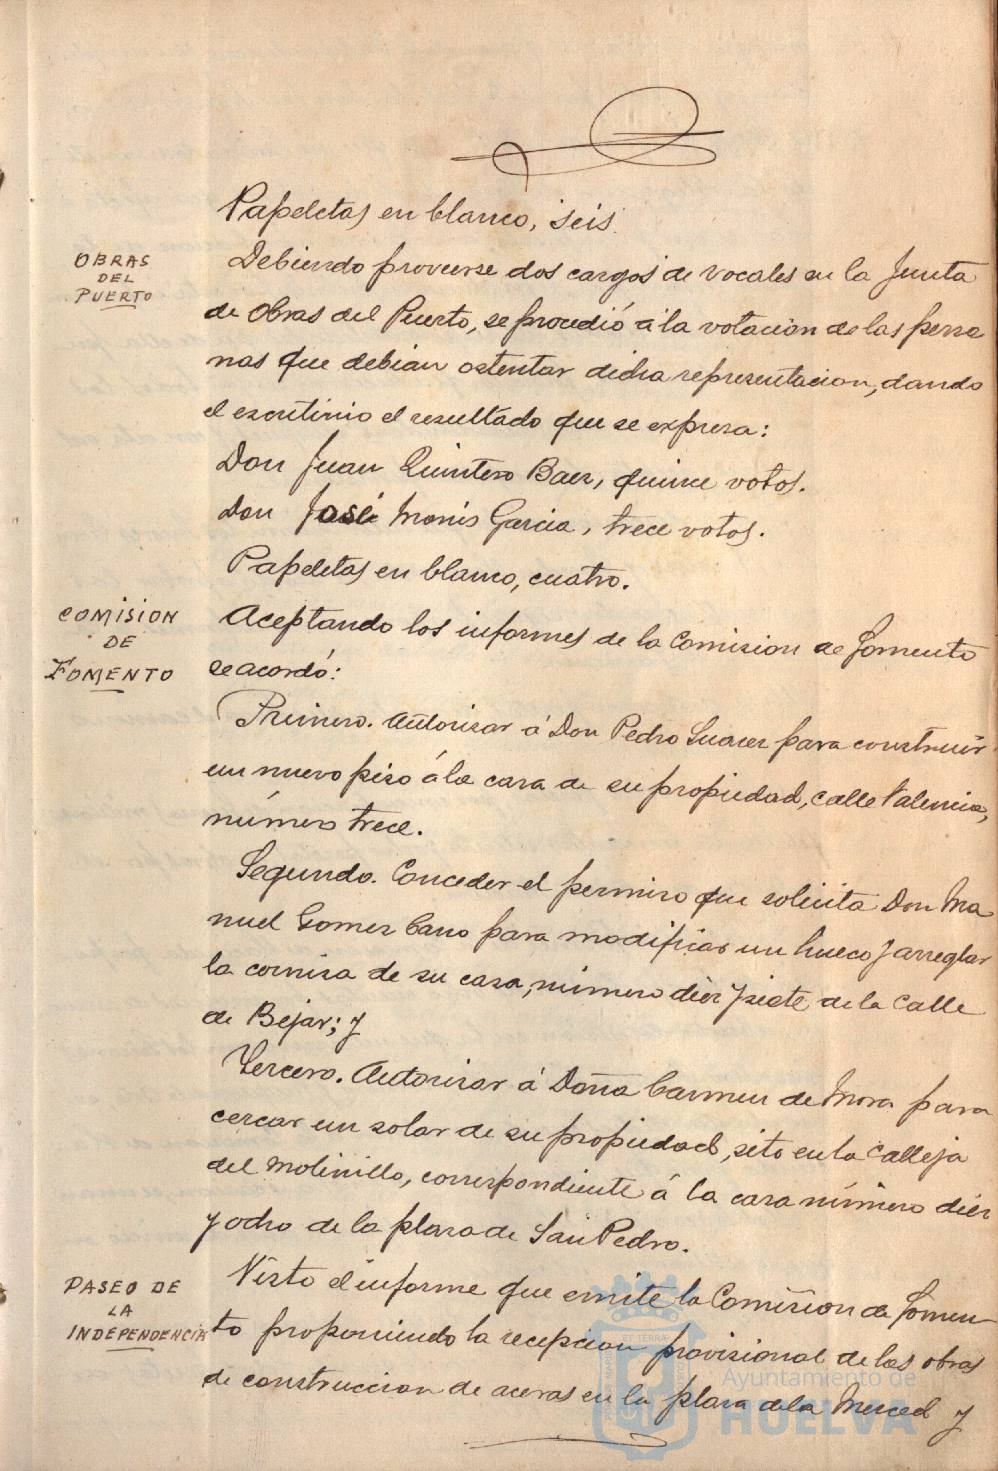 Papeletas en blanco, seis.
OBRAS
DEL
PUERTO
Debiendo proveerse dos cargos de vocales en la Junta
de Obras del Puerto, se procedió á la votacion de las perso
nas que debian ostentar dicha representacion, dando
el escrutinio el resultado que se expresa:
Don Juan Quintero Baez, quince votos.
Don José Monis Garcia, trece votos.
Papeletas en blanco, cuatro.
COMISION
DE
FOMENTO
Aceptando los informes de la Comision de Fomento
se acordó:
Primero. Autorizar á Don Pedro Suarez para construir
un nuevo piso á la casa de su propiedad, calle Valencia,
número trece.
Segundo. Conceder el permiso que solicita Don Ma
nuel Gomez Cano para modificar un hueco y arreglar
la cornisa de su casa, número diez y siete de la calle
de Bejar; y
Tercero. Autorizar á Doña Carmen de Mora para
cercar un solar de su propiedad, sito en la calleja
del Molinillo, correspondiente á la casa número diez
y ocho de la plaza de San Pedro.
PASEO DE
LA
INDEPENDENCIA
Visto el informe que emite la Comision de Fomen
to proponiendo la recepcion provisional de las obras
de construccion de aceras en la plaza de la Merced y
Ayuntamiento de
HUELVA